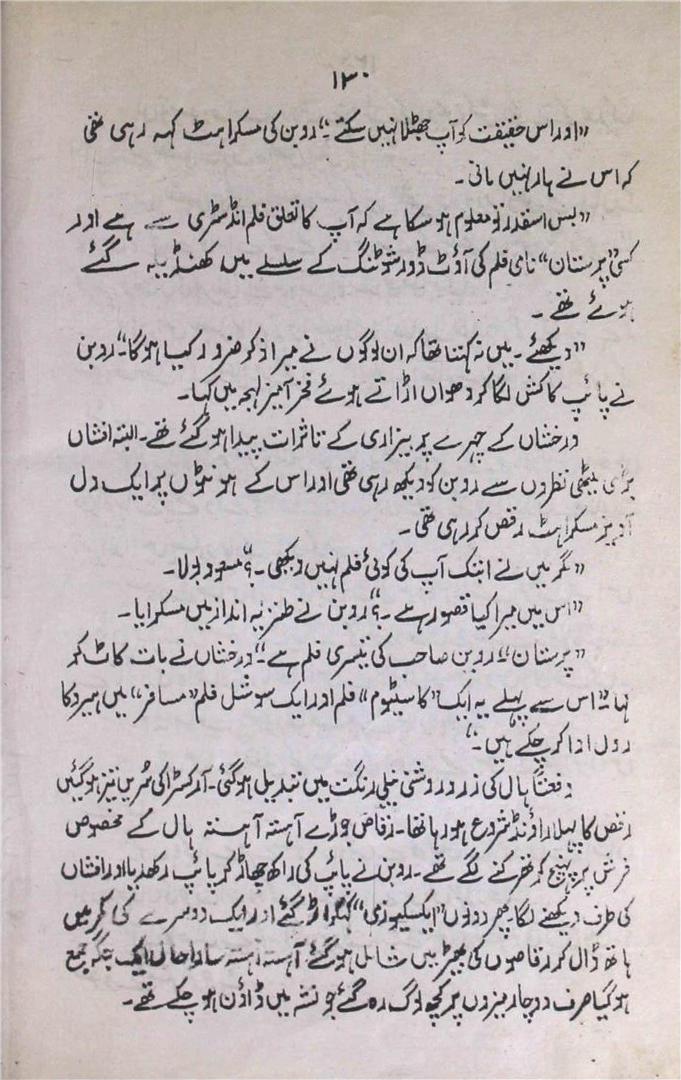 ۱۳۰
"اور اس حقیقت کو آپ جھٹلا نہیں سکتے۔" روبن کی مسکراہٹ کہہ رہی تھی
کہ اس نے ہار نہیں مانی۔
"بس اسقدر تو معلوم ہو سکا ہے کہ آپ کا تعلق فلم انڈسٹری سے ہے اور
کسی "پرستان" نامی فلم کی آؤٹ ڈور شوٹنگ کے سلسلے میں کھنڈیلہ گئے
ہوئے تھے۔
"دیکھئے۔ میں نہ کہتا تھا کہ ان لوگوں نے میرا ذکر ضرور کیا ہوگا۔" روبن
نے پائپ کا کش لگا کر دھواں اڑاتے ہوئے فخر آمیز لہجہ میں کہا۔
درخشاں کے چہرے پر بیزاری کے تاثرات پیدا ہو گئے تھے۔ البتہ افشاں
بڑی میٹھی نظروں سے روبن کو دیکھ رہی تھی اور اس کے ہونٹوں پر ایک دل
آویز مسکراہٹ رقص کر رہی تھی۔
"مگر میں نے ابتک آپ کی کوئی فلم نہیں دیکھی۔؟" مسعود بولا۔
"اس میں میرا کیا قصور ہے۔؟" روبن نے طنزیہ انداز میں مسکرایا۔
"پرستان" روبن صاحب کی تیسری فلم ہے۔" درخشاں نے بات کاٹ کر
کہا "اس سے پہلے یہ ایک "کاسٹیوم" فلم اور ایک سوشل فلم "مسافر" میں ہیرو کا
رول ادا کر چکے ہیں۔"
دفعتاً ہال کی زرد روشنی نیلی رنگت میں تبدیل ہو گئی۔ آرکسٹرا کی سُریں تیز ہو گئیں
رقص کا پہلا راؤنڈ شروع ہو رہا تھا۔ رقاص جوڑے آہستہ آہستہ ہال کے مخصوص
فرش پر پہنچ کر تھرکنے لگے تھے۔ روبن نے پائپ کی راکھ جھاڑ کر پائپ رکھدیا اور افشاں
کی طرف دیکھنے لگا۔ پھر دونوں "ایکسکیوزمی" کہکر اٹھ گئے اور ایک دوسرے کی کمر میں
ہاتھ ڈال کر رقاصوں کی بھیڑ میں شامل ہو گئے آہستہ آہستہ سارا ہال ایک جگہ جمع
ہو گیا صرف دو چار میزوں پر کچھ لوگ رہ گئے جو نشہ میں ڈاؤن ہو چکے تھے۔